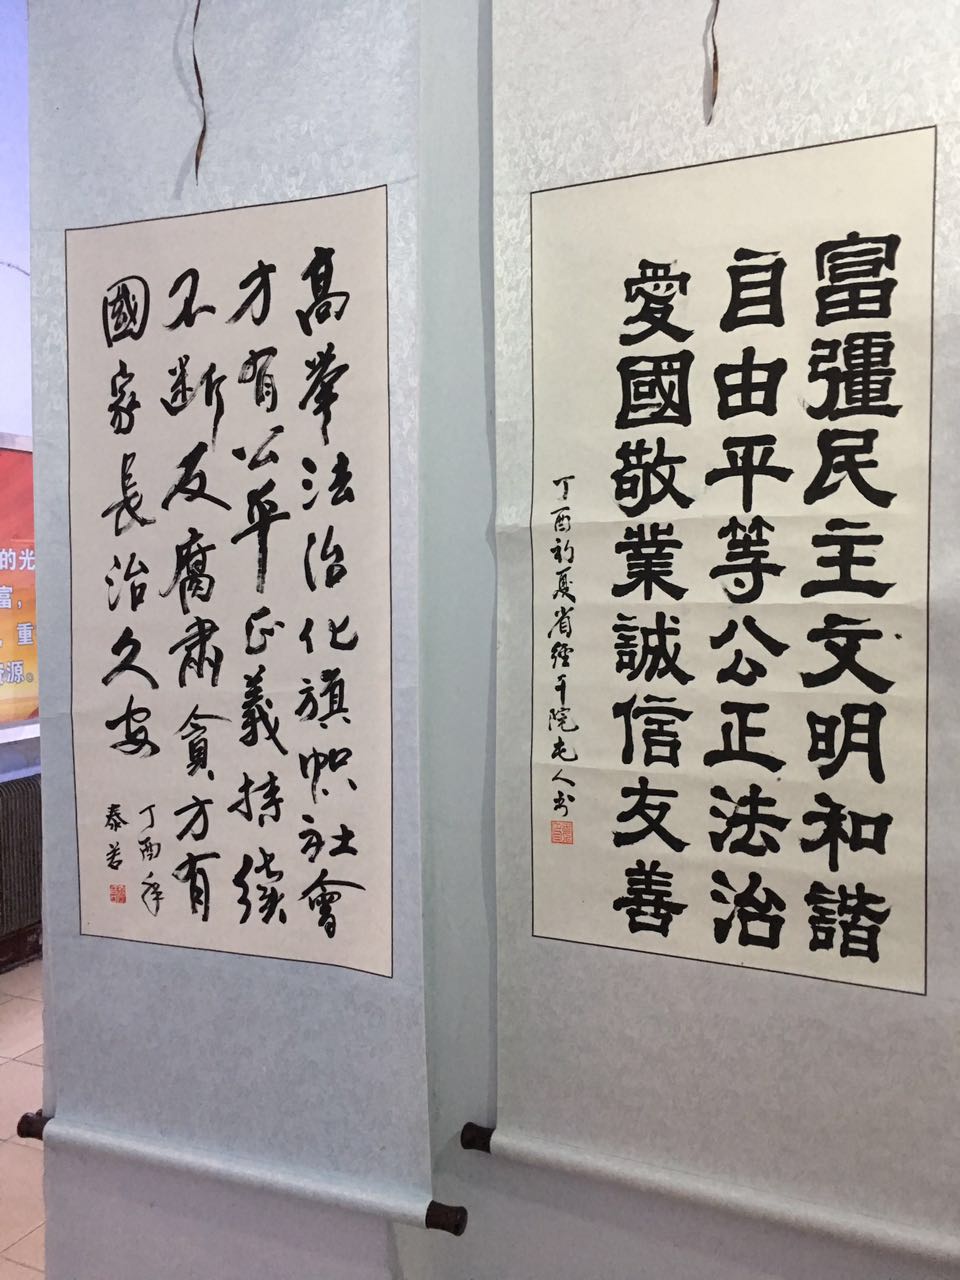 富彊民主文明和諧
自由平等公正法治
愛國敬業誠信友善
丁酉初夏省經干院
人书
高举法治化旗幟社會
才有公平正義持续
不断反腐肃貪方有
國家長治久安
丁酉年
泰若
的光
富，
，重
资源。